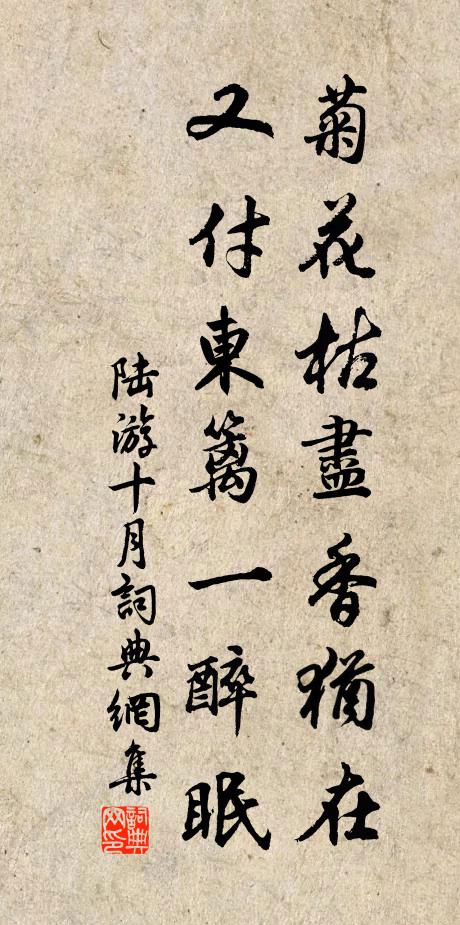 菊花枯盡香猶在
又付東篱一醉眠
陸游十月詞典網集
詞典网印